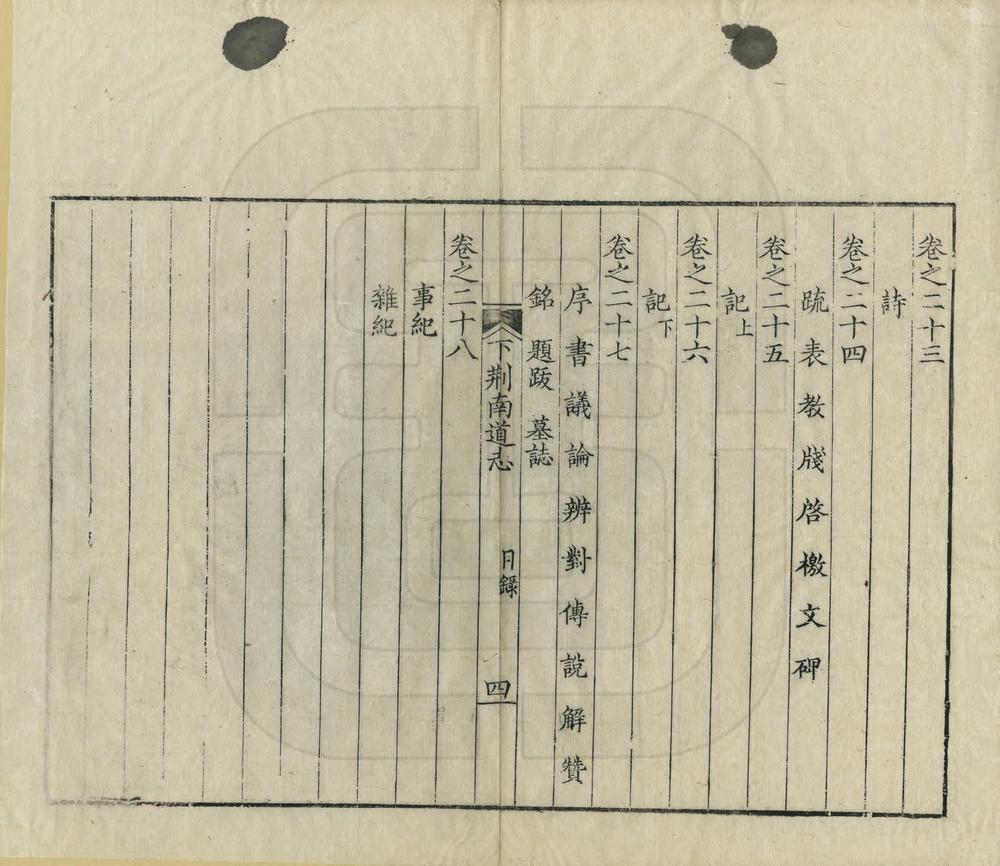 卷之二十三
詩
卷之二十四
疏 表 教 牋 啓 檄 文 碑
卷之二十五
記上
卷之二十六
記下
卷之二十七
序 書 議 論 辨 對 傳 說 解 贊
銘 題跋 墓誌
下荆南道志 目錄 四
卷之二十八
事紀
雜紀